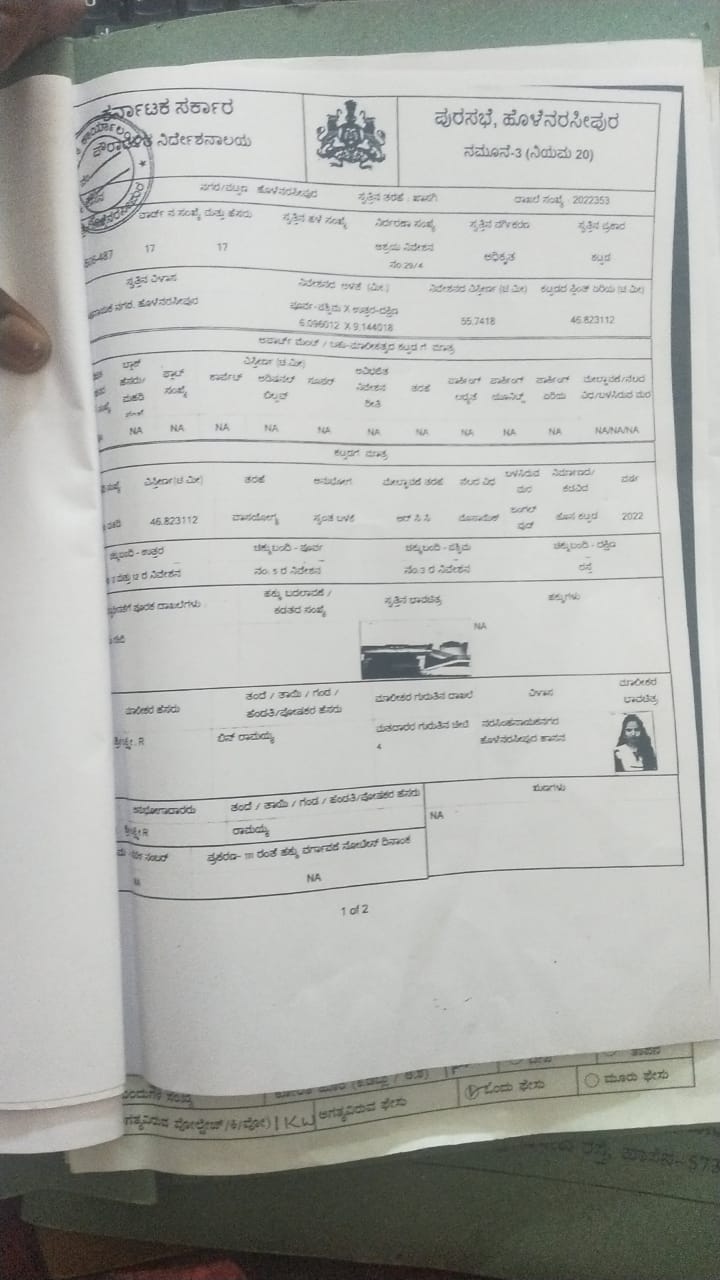 ಕರ್ನಾಟಕ ಸರ್ಕಾರ
ಪೌರಾಡಳಿತ ನಿರ್ದೇಶನಾಲಯ
ಪುರಸಭೆ, ಹೊಳೆನರಸೀಪುರ
ನಮೂನೆ-3 (ನಿಯಮ 20)
ನಗರ/ಪಟ್ಟಣ ಹೊಳೆನರಸೀಪುರ ಸ್ವತ್ತಿನ ತರಹೆ : ಖಾಸಗಿ ದಾಖಲೆ ಸಂಖ್ಯೆ : 2022353
ವಾರ್ಡ್ ನ ಸಂಖ್ಯೆ ಮತ್ತು ಹೆಸರು ಸ್ವತ್ತಿನ ಹಳೆ ಸಂಖ್ಯೆ ನಿರ್ಧರಣಾ ಸಂಖ್ಯೆ ಸ್ವತ್ತಿನ ವರ್ಗೀಕರಣ ಸ್ವತ್ತಿನ ಪ್ರಕಾರ
-487 17 17 ಆಶ್ರಯ ನಿವೇಶನ ಅಧಿಕೃತ ಕಟ್ಟಡ
ನಂ:29/4
ಸ್ವತ್ತಿನ ವಿಳಾಸ ನಿವೇಶನದ ಅಳತೆ (ಮೀ.) ನಿವೇಶನದ ವಿಸ್ತೀರ್ಣ (ಚ ಮೀ) ಕಟ್ಟಡದ ಪ್ಲಿಂತ್ ಏರಿಯ (ಚ ಮೀ)
ನಗರ, ಹೊಳೆನರಸೀಪುರ ಪೂರ್ವ-ಪಶ್ಚಿಮ X ಉತ್ತರ-ದಕ್ಷಿಣ
6.096012 X 9.144018 55.7418 46.823112
ಅಪಾರ್ಟ್ ಮೆಂಟ್ / ಬಹು-ಮಾಲೀಕತ್ವದ ಕಟ್ಟಡಗಳಿಗೆ ಮಾತ್ರ
ಬ್ಲಾಕ್ ಫ್ಲಾಟ್ ವಿಸ್ತೀರ್ಣ (ಚ ಮೀ) ಅವಿಭಜಿತ
ಹೆಸರು/ ಸಂಖ್ಯೆ ಕಾರ್ಪೆಟ್ ಅಡಿಷನಲ್ ಸೂಪರ್ ನಿವೇಶನ ತರಹೆ ಪಾರ್ಕಿಂಗ್ ಪಾರ್ಕಿಂಗ್ ಪಾರ್ಕಿಂಗ್ ಮೇಲ್ಚಾವಣಿ/ನೆಲದ
ಮಹಡಿ ಬಿಲ್ಟಪ್ ರೀತಿ ಲಭ್ಯತೆ ಯೂನಿಟ್ಸ್ ಏರಿಯ ವಿಧ/ಬಳಸಿರುವ ಮರ
NA NA NA NA NA NA NA NA NA NA NA/NA/NA
ಕಟ್ಟಡಗಳಿಗೆ ಮಾತ್ರ
ವಿಸ್ತೀರ್ಣ(ಚ ಮೀ) ತರಹೆ ಉಪಯೋಗ ಮೇಲ್ಚಾವಣಿ ತರಹೆ ನೆಲದ ವಿಧ ಬಳಸಿರುವ ಮರ ನಿರ್ಮಾಣದ/ ಕಟ್ಟಡವಿಧ ವರ್ಷ
46.823112 ವಾಸಯೋಗ್ಯ ಸ್ವಂತ ಬಳಕೆ ಆರ್ ಸಿ ಸಿ ಮೊಸಾಯಿಕ್ ಜಂಗಲ್ ವುಡ್ ಹೊಸ ಕಟ್ಟಡ 2022
ಚಕ್ಕುಬಂದಿ - ಉತ್ತರ ಚಕ್ಕುಬಂದಿ - ಪೂರ್ವ ಚಕ್ಕುಬಂದಿ - ಪಶ್ಚಿಮ ಚಕ್ಕುಬಂದಿ - ದಕ್ಷಿಣ
ಮತ್ತು 12 ರ ನಿವೇಶನ ನಂ: 5 ರ ನಿವೇಶನ ನಂ:3 ರ ನಿವೇಶನ ರಸ್ತೆ
ಪೂರಕ ದಾಖಲೆಗಳು ಹಕ್ಕು ಬದಲಾವಣೆ / ಕಡತದ ಸಂಖ್ಯೆ ಸ್ವತ್ತಿನ ಭಾವಚಿತ್ರ ಹಕ್ಕುಗಳು
NA
ಮಾಲೀಕರ ಹೆಸರು ತಂದೆ / ತಾಯಿ / ಗಂಡ / ಹೆಂಡತಿ/ಪೋಷಕರ ಹೆಸರು ಮಾಲೀಕರ ಗುರುತಿನ ದಾಖಲೆ ವಿಳಾಸ ಮಾಲೀಕರ ಭಾವಚಿತ್ರ
R ಬಿನ್ ರಾಮಯ್ಯ ಮತದಾರರ ಗುರುತಿನ ಚೀಟಿ ನರಸಿಂಹನಾಯಕನಗರ
4 ಹೊಳೆನರಸೀಪುರ ಹಾಸನ
ಅನುಭೋಗದಾರರು ತಂದೆ / ತಾಯಿ / ಗಂಡ / ಹೆಂಡತಿ/ಪೋಷಕರ ಹೆಸರು ಋಣಗಳು
R ರಾಮಯ್ಯ NA
ಪ್ರಕರಣ- 111 ರಂತೆ ಹಕ್ಕು ವರ್ಗಾವಣೆ ನೋಟೀಸ್ ದಿನಾಂಕ
NA
1 of 2
ಒಂದು ಫೇಸು ಮೂರು ಫೇಸು
ಅಗತ್ಯವಿರುವ ವೋಲ್ಟೇಜ್ 1KW ಅಗತ್ಯವಿರುವ ಫೇಸು